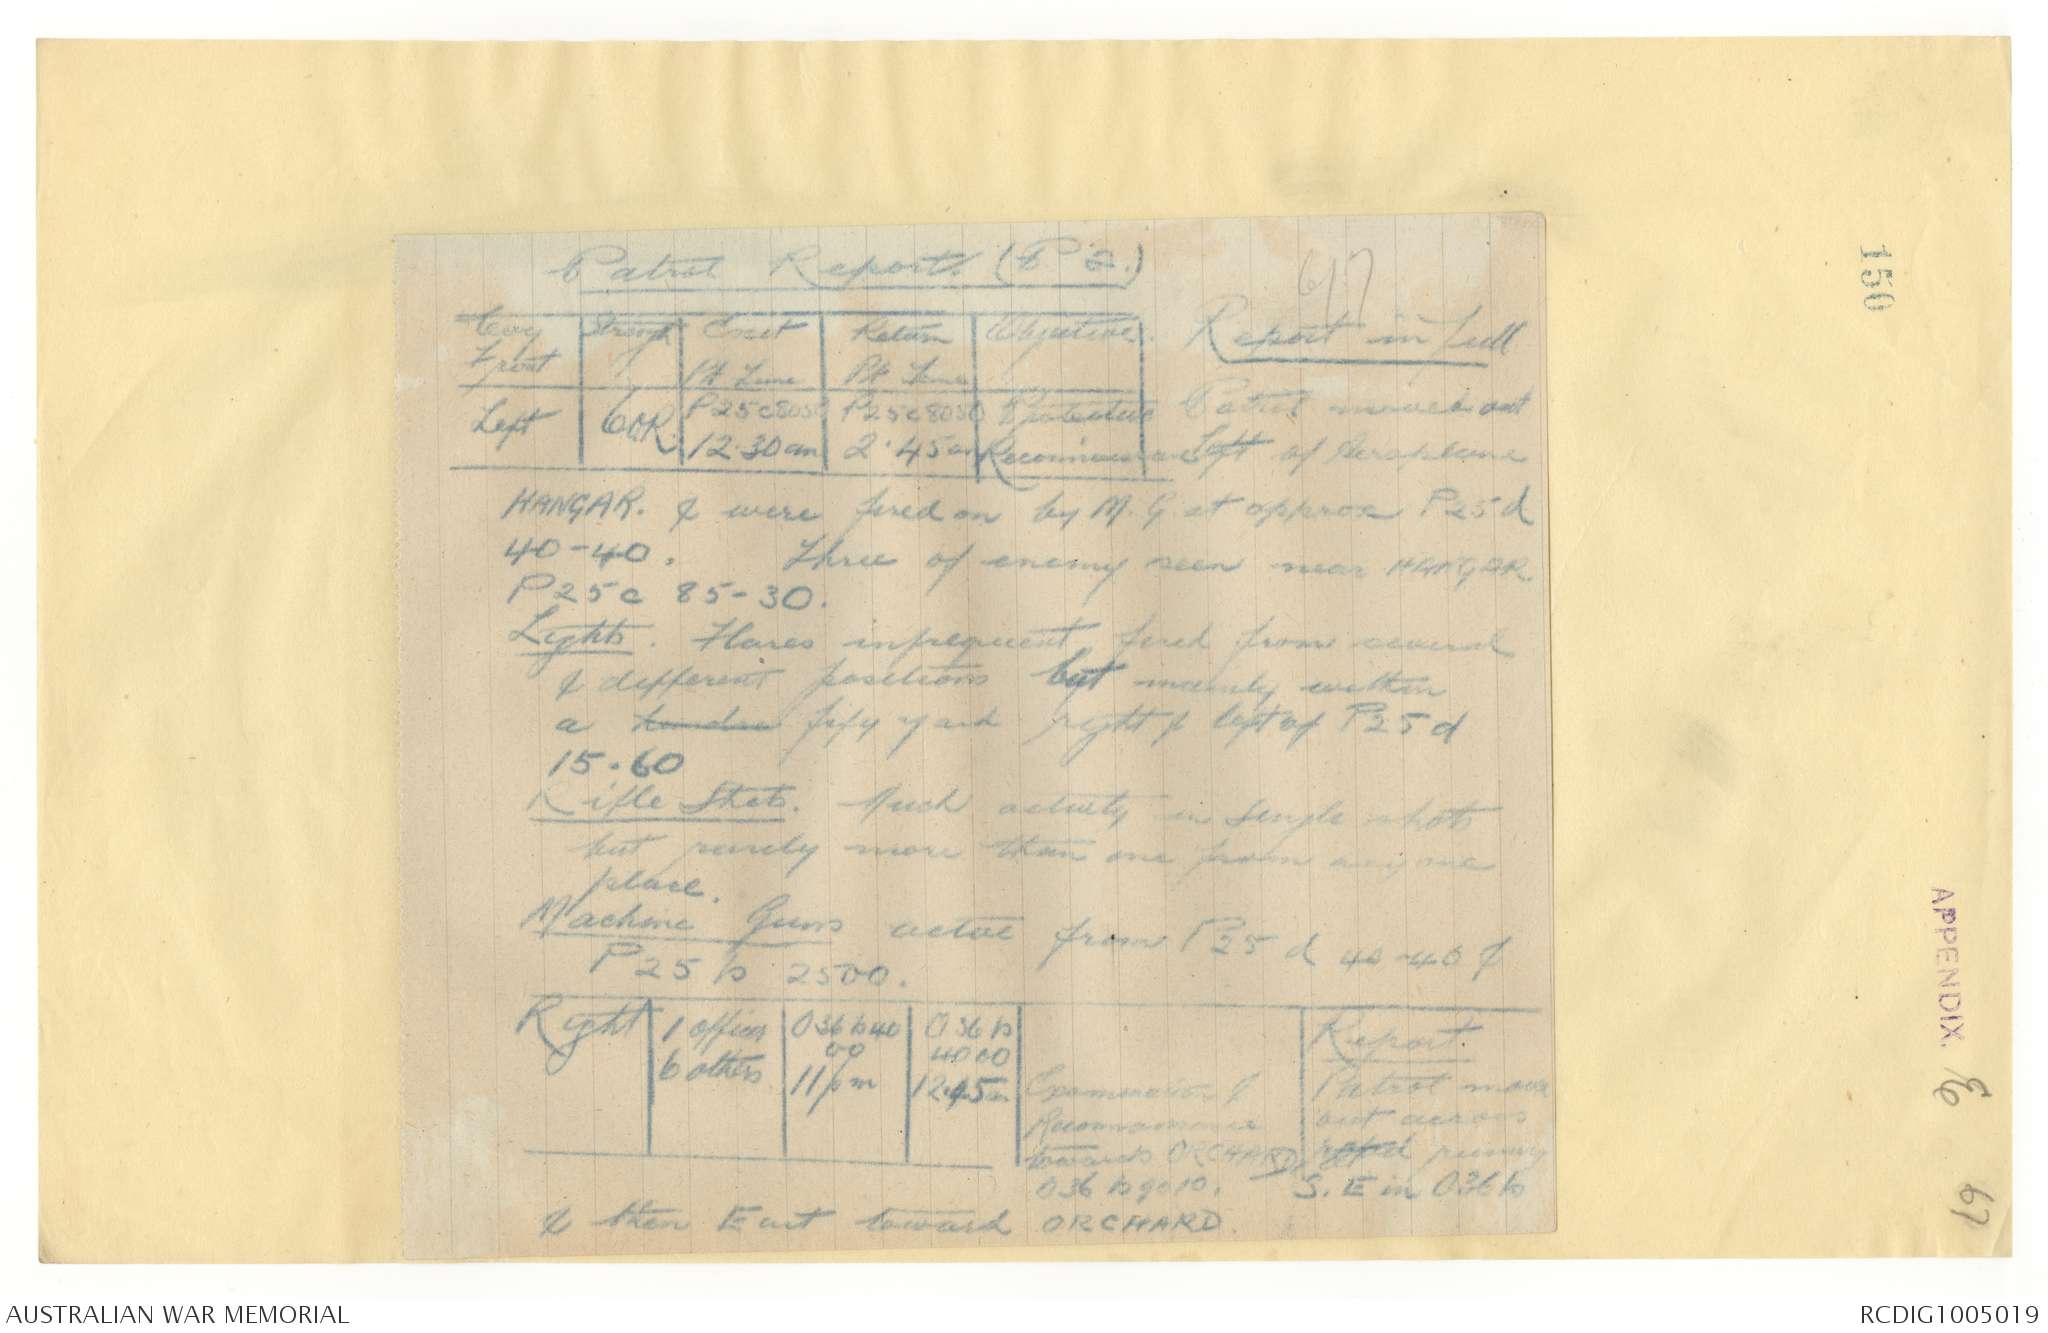 Patrol Report (P 2.)
67
Coy Front | Strength | Exit Pt Time | Return Pt Time | Objective.
Report in full
Left | 6 OR. | P25c8050 12.30 am | P25c8050 2.45 am | Protective Reconnaissance
Patrol moved out
Left of Aeroplane
HANGAR. & were fired on by M.G. at approx P25d
40-40. Three of enemy seen near HANGAR.
P25c 85-30.
Lights. Flares infrequent fired from several
& different positions but mainly within
a fify yard right & left of P25d
15.60
Rifle Shots. Much activity in single shots
but rarely more than one from any one
place.
Machine Guns active from P25d 40-40 &
P25b 2500.
Right | 1 officer 6 others | O36b40 00 11 pm | O36b 4000 12.45 am | Examination & Reconnaissance towards ORCHARD O36b9010.
Report.
Patrol move
out across
road running
S.E in O36b
& then East toward ORCHARD.
150
APPENDIX.
67
AUSTRALIAN WAR MEMORIAL
RCDIG1005019